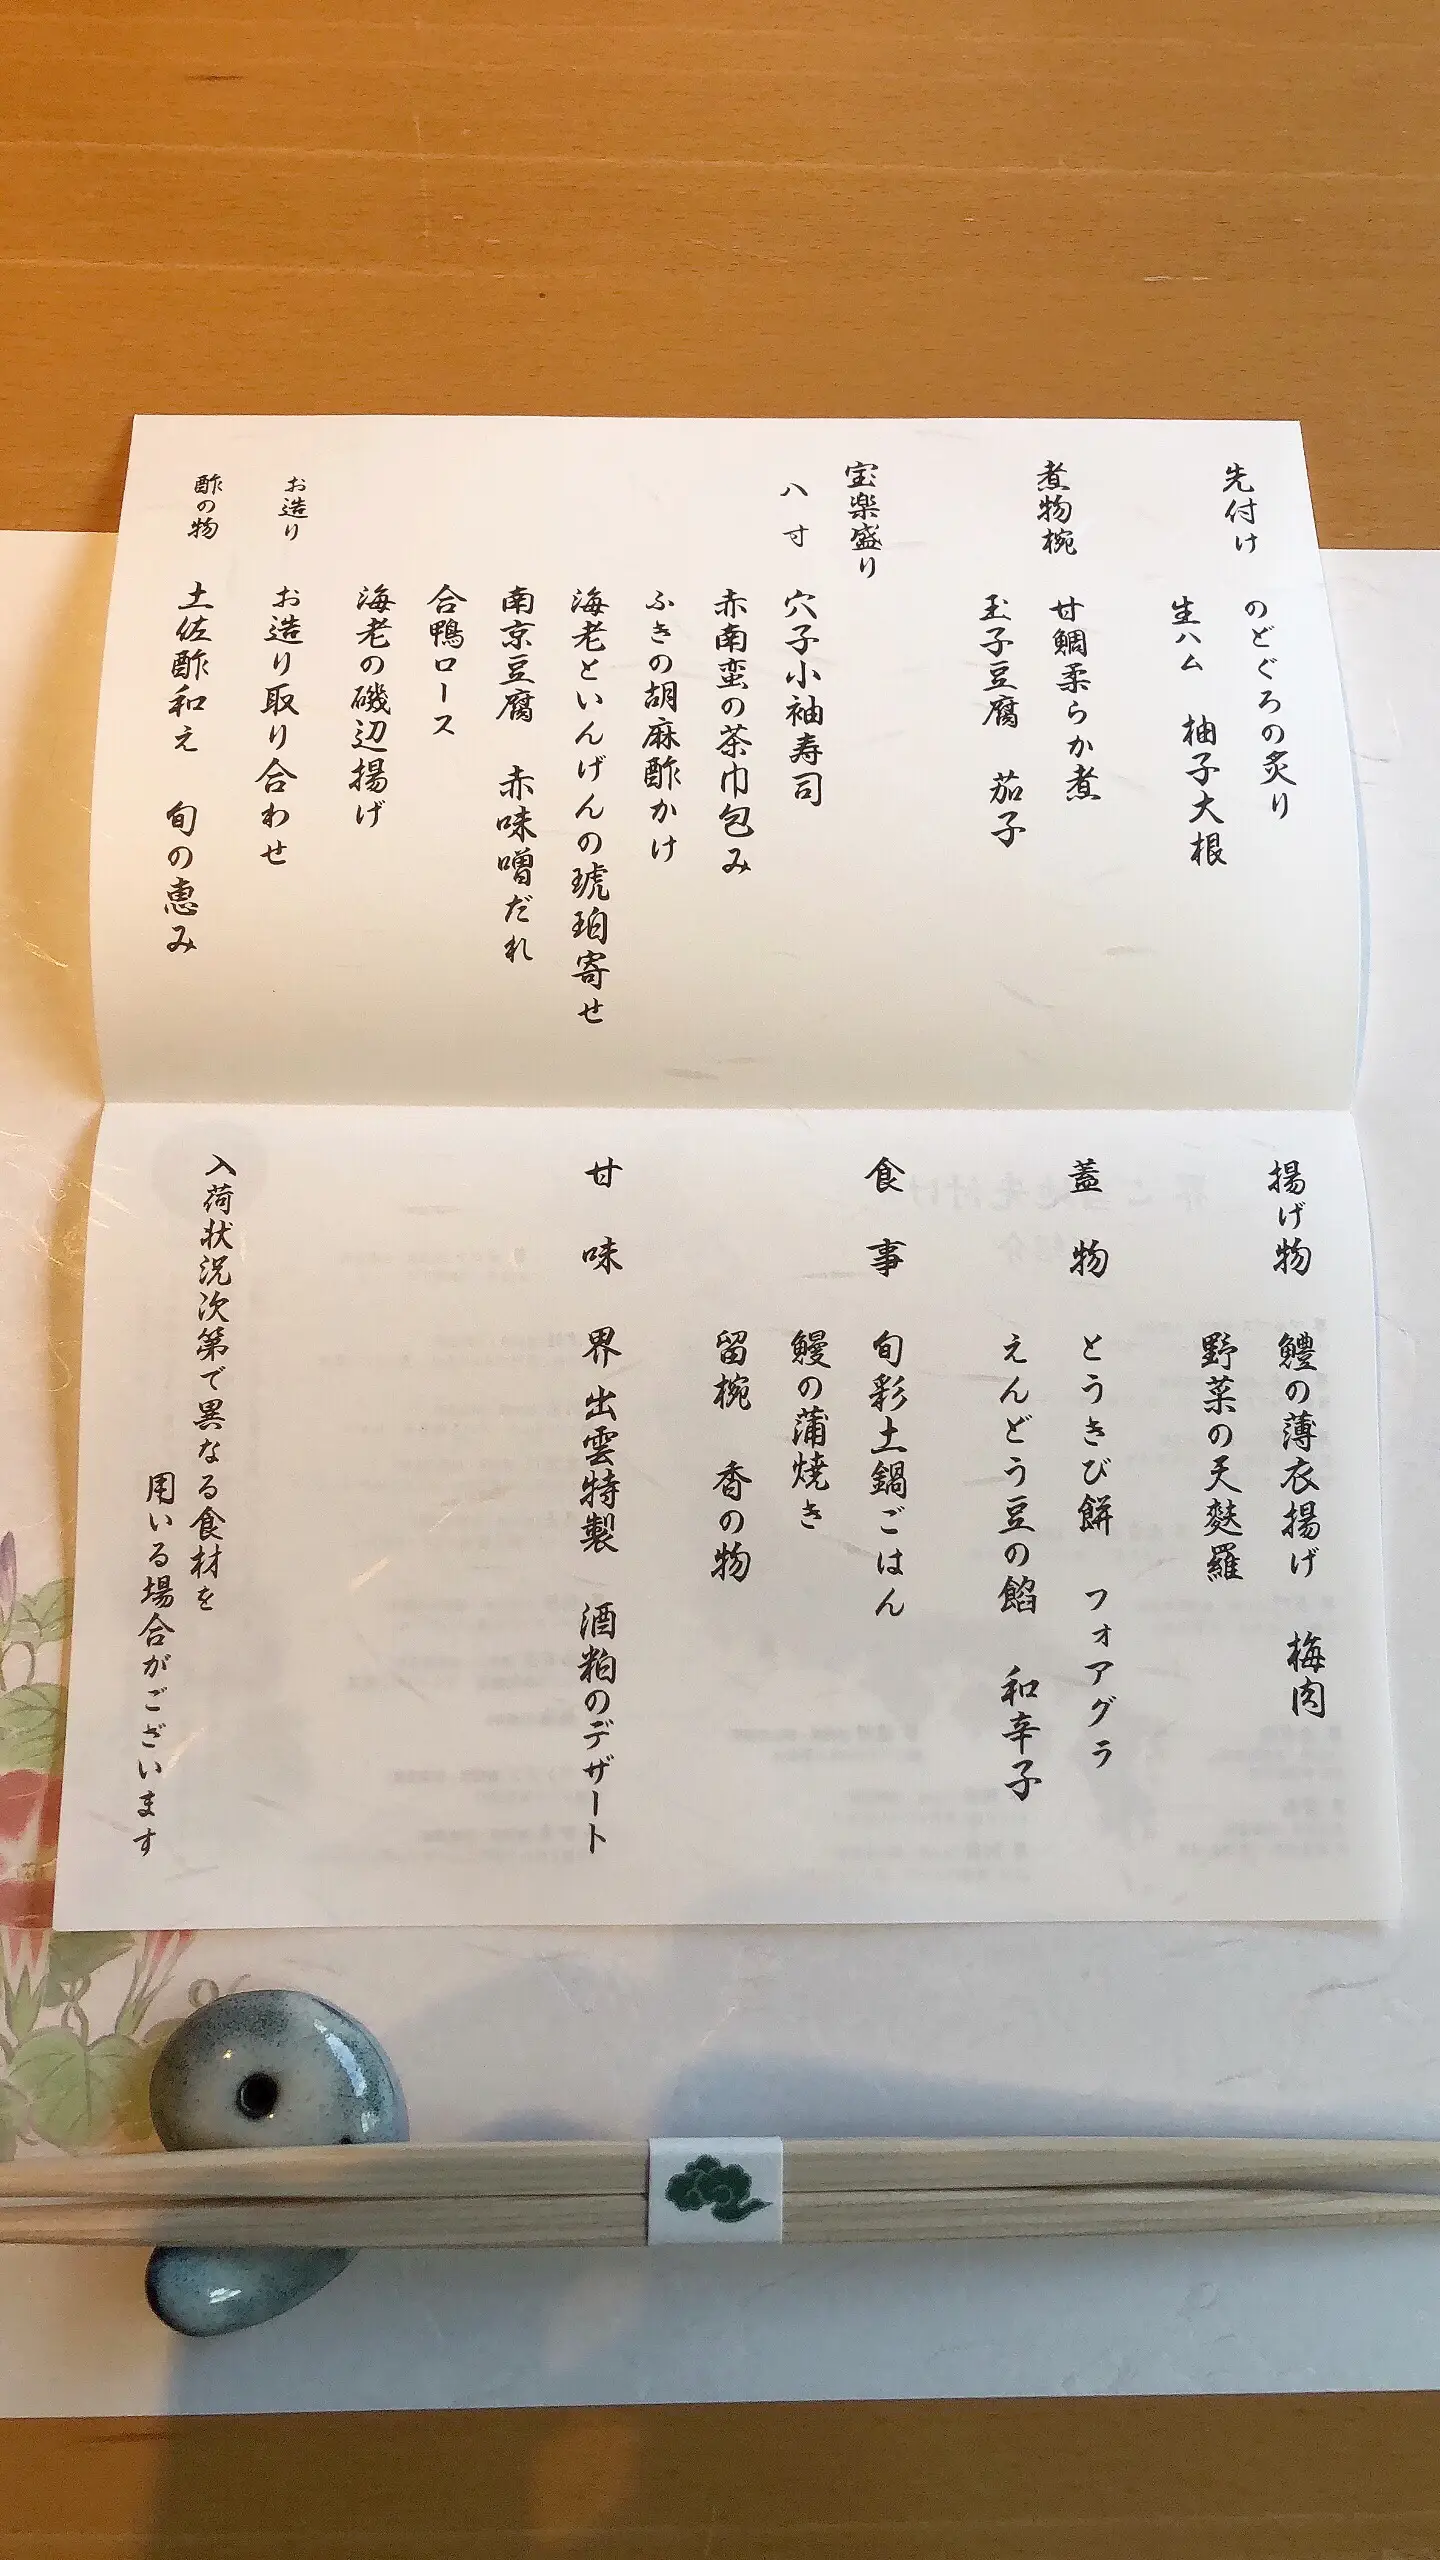 先付け　のどぐろの炙り
生ハム　柚子大根
煮物椀　甘鯛柔らか煮
玉子豆腐　茄子
宝楽盛り
八寸　穴子小袖寿司
赤南蛮の茶巾包み
ふきの胡麻酢かけ
海老といんげんの琥珀寄せ
南京豆腐　赤味噌だれ
合鴨ロース
海老の磯辺揚げ
お造り　お造り取り合わせ
酢の物　土佐酢和え　旬の恵み
揚げ物　鱧の薄衣揚げ　梅肉
野菜の天麩羅
蓋物　とうきび餅　フォアグラ
えんどう豆の餡　和辛子
食事　旬彩土鍋ごはん
鰻の蒲焼き
留椀　香の物
甘味　界 出雲特製　酒粕のデザート
入荷状況次第で異なる食材を
用いる場合がございます